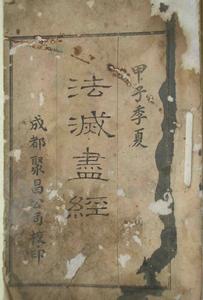 甲子季夏
法滅盡經
成都聚昌公司復印